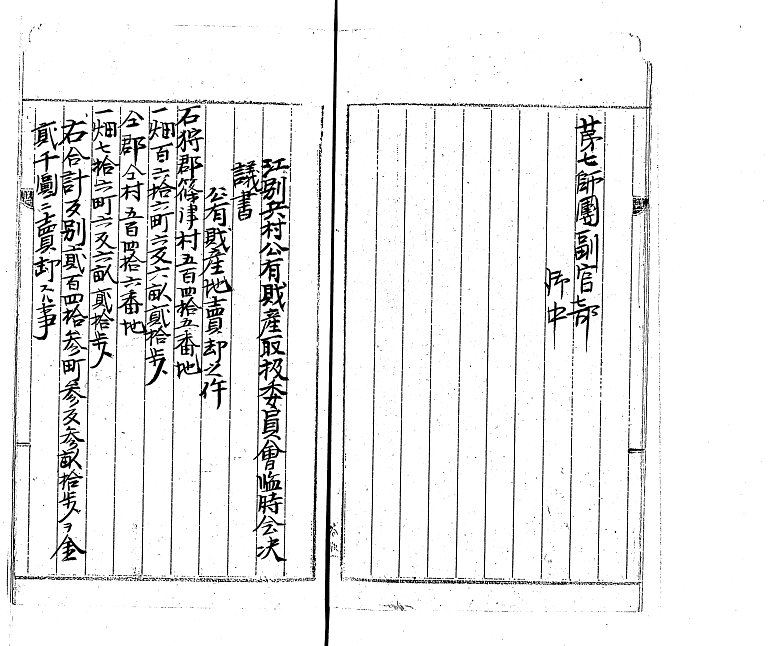 第七師團副官部
御中
江別兵村公有財産取扱委員會臨時会决
議書
公有財産地賣却之件
石狩郡篠津村五百四拾五番地
一畑百六拾六町六反六畝貳拾歩
仝郡仝村五百四拾六番地
一畑七拾六町六反六畝貳拾歩
右合計反別貳百四拾参町参反参畝拾歩ヲ金
貳千圓ニ賣却スル事